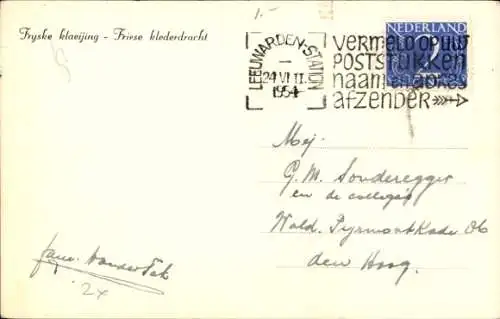 1.-
Fryske klaeijing - Friese klederdracht
LEEUWARDEN-STATION
24 VI 11.
1954
VERMELD OP UW
POSTSTUKKEN
NAAM EN ADRES
AFZENDER
NEDERLAND
Mej.
G. M. Sonderegger
en de collega's
Wald. Pyrmontkade
den Haag.
2x